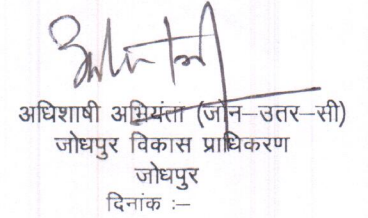 अधिशाषी अभियंता (जोन–उतर–सी)
जोधपुर विकास प्राधिकरण
जोधपुर
दिनांक :–